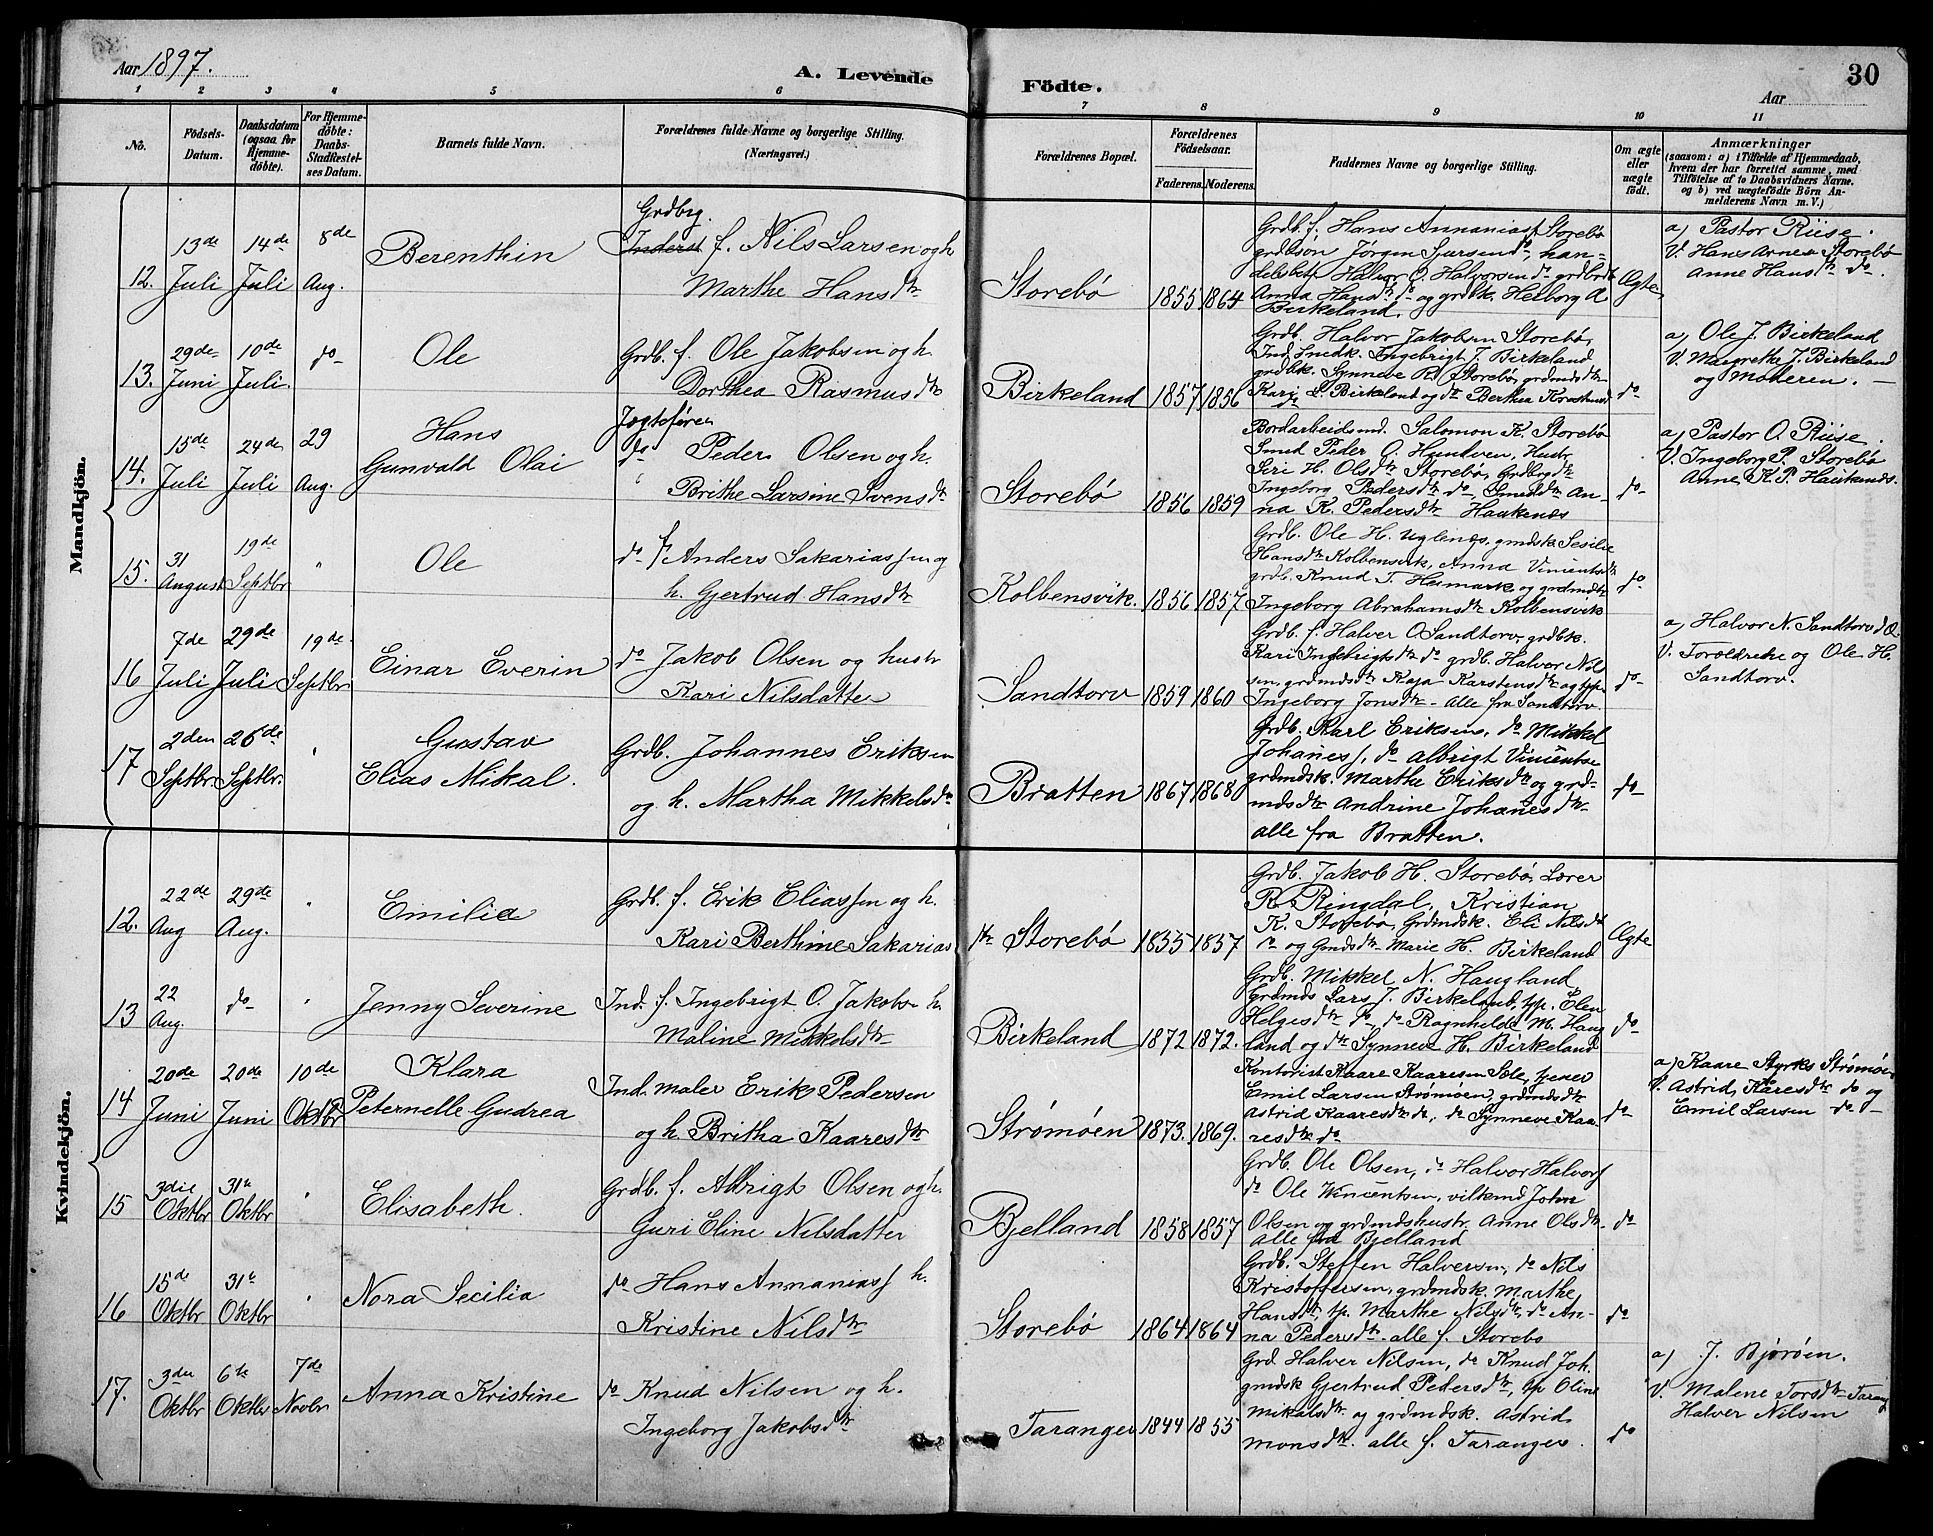 Aar 1897.
A. Levende Födte.
30
Aar
1 2 3 4 5 6 7 8 9 10 11
No.
Födsels-Datum.
Daabsdatum (ogsaa for Hjemme-døbte).
For Hjemme-døbte: Daabs-Stadfæstel-ses Datum.
Barnets fulde Navn.
Forældrenes fulde Navne og borgerlige Stilling. (Næringsvei.)
Forældrenes Bopæl.
Forældrenes Födselsaar.
Faderens. Moderens.
Faddernes Navne og borgerlige Stilling.
Om ægte eller uægte født.
Anmærkninger
(saasom: a) i Tilfælde af Hjemmedaab,
hvem der har forrettet samme, med
Tilføielse af to Daabsvidners Navne,
og b) ved uægtefødte Börn An-
melderens Navn m. V.)
Mandkjön.
12. 13de Juli 14de Juli 8de Aug.
Berenthin
Grdbrg.
Inderst f. Nils Larsen og h.
Marthe Hansdtr
Storebø 1855 1864
Grdb. f. Hans Annaniasf Storebø
grdbsøn Jørgen Sjursen do, han-
delsbetj. Halvor O. Halvorsen do grdbrdtr
Anna Hansdtr do og grdbk. Herborg A
Birkeland.
Ægte
a) Pastor Riise.
V. Hans Arnes Storebø
Anne Hansdtr do.
13. 29de Juni 10de Juli do
Ole
Grdb. f. Ole Jakobsen og h.
Dorthea Rasmusdtr
Birkeland 1857 1856
Grdb. Halvor Jakobsen Storebø,
Ind. Smedk. Ingebrigt J. Birkeland
grdbk. Synneve R. Storebø, grdmdsdtr
Kari L. Birkeland og do Berthea
do
a) Ole J. Birkeland
V. Margrethe J. Birkeland
og Moderen.
14. 15de Juli 24de Juli 29 Aug.
Hans
Gunvald Olai
Jagtefører
do Peder Olsen og h.
Brithe Larsine Svensdtr
Storebø 1856 1859
Bordarbeidsmd. Salomon K. Storebø
Smed Peder O. Hundven, Hustr.
Siri H. Olsdtr Storebø, Grdbrgdtr
Ingeborg Pedersdtr do, Smeddtr An-
na K. Pedersdtr Haukenæs
do
a) Pastor O. Riise.
V. Ingeborg P. Storebø
Anne K. P. Haukenæs.
15. 31 August 19de Septbr "
Ole
do f Anders Sakariassen og
h. Gjertrud Hansdtr
Kolbensvik. 1856 1857
Grdb. Ole H. Uglenæs, gmdsk Sesilie
Hansdtr Kolbensvik, Anna Vincentsdtr
grdb. Knud T. Heimark og grdmdtr
Ingeborg Abrahamsdtr Kolbensvik
do
16 7de Juli 29de Juli 19de Septbr
Einar Everin
do Jakob Olsen og hustr
Kari Nilsdatter
Sandtorv 1859 1860
Grdb. f. Halver O Sandtorv, grdbk.
Kari Ingebrigtsdtr do grdb. Halvor Nil
sen, grdmdsdtr Kaja Karstensdtr og tjp.
Ingeborg Jonsdtr - Alle fra Sandtorv.
do
a) Halvor N. Sandtorv d. Æ.
V. Forældrene og Ole H.
Sandtorv.
17 2den Septbr. 26de Septbr. "
Gustav
Elias Mikal.
Grdb. Johannes Eriksen
og h. Martha Mikkelsdtr
Bratten 1867 1868
Grdb. Karl Eriksen, do Mikkel
Johanesf, do Albrigt Vincentse
grdmdsk. Marthe Eriksdtr og grd-
mdsdtr Andrine Johanesdtr
alle fra Bratten.
do
Kvindekjön.
12. 22de Aug 29de Aug. "
Emilie
Grdb. f. Erik Eliassen og h.
Kari Berthine Sakarias
dtr Storebø 1855 1857
Grdb. Jakob H. Storebø, Lærer
R. Ringdal, Kristian
K. Storebø, Grdmdsk. Eli Nilsdtr
do og Gmdsdtr Marie H. Birkeland
Ægte
13 22 Aug. do "
Jenny Severine
Ind. f. Ingebrigt O. Jakobse h.
Maline Mikkelsdtr
Birkeland 1872 1872.
Grdb. Mikkel N. Haugland
Grdmds Lars J. Birkeland, tjp. Elen
Helgesdtr do, do Ragnhilde M. Haug
land og dtr Synneve H. Birkeland
do
14 20de Juni 20de Juni 10de Oktbr
Klara
Peternelle Gudrea
Ind. maler Erik Pedersen
og h. Britha Kaaresdtr
Strømøen 1873. 1869.
Kontorist Kaare Kaaresen Sole, tjener
Emil Larsen Strømøen, grdmdsdtr
Astrid Kaaresdtr do, do Synneve Kaa-
resdtr do
do
a) Kaare Styrks Strømøen
V. Astrid Kåresdtr do og
Emil Larsen do
15 3die Oktbr 31te Oktbr "
Elisabeth.
Grdb. f. Albrigt Olsen og h.
Guri Eline Nilsdatter
Bjelland 1858 1857
Grdb. Ole Olsen, do Halvor Halvorsf
do Ole Vincentsen, John
Olsen og grdmdshustr. Anne Olsdtr
Alle fra Bjelland
do
16 15de Oktbr 31te Oktbr "
Nora Secilia
do Hans Annaniasf h.
Kristine Nilsdtr
Storebø 1864 1864
Grdb. Steffen Halversen, do Nils
Kristoffersen, grdmdsk. Marthe
Hansdtr, tp. Marthe Nilsdtr, do An-
na Pedersdtr alle f. Storebø
do
17. 3die Oktbr 6te Oktbr 7de Novbr
Anna Kristine
do Knud Nilsen og h.
Ingeborg Jakobsdtr
Taranger 1844 1855
Grd Halver Nilsen, do Knud Joh.
gmdsk Gjertrud Pedersdtr, tjp Oline
Mikalsdtr og grdmdsk. Astrid
Monsdtr. alle f. Taranger.
do
a) J. Bjørøen.
V. Malene Torsdtr Tarang
Halver Nilsen